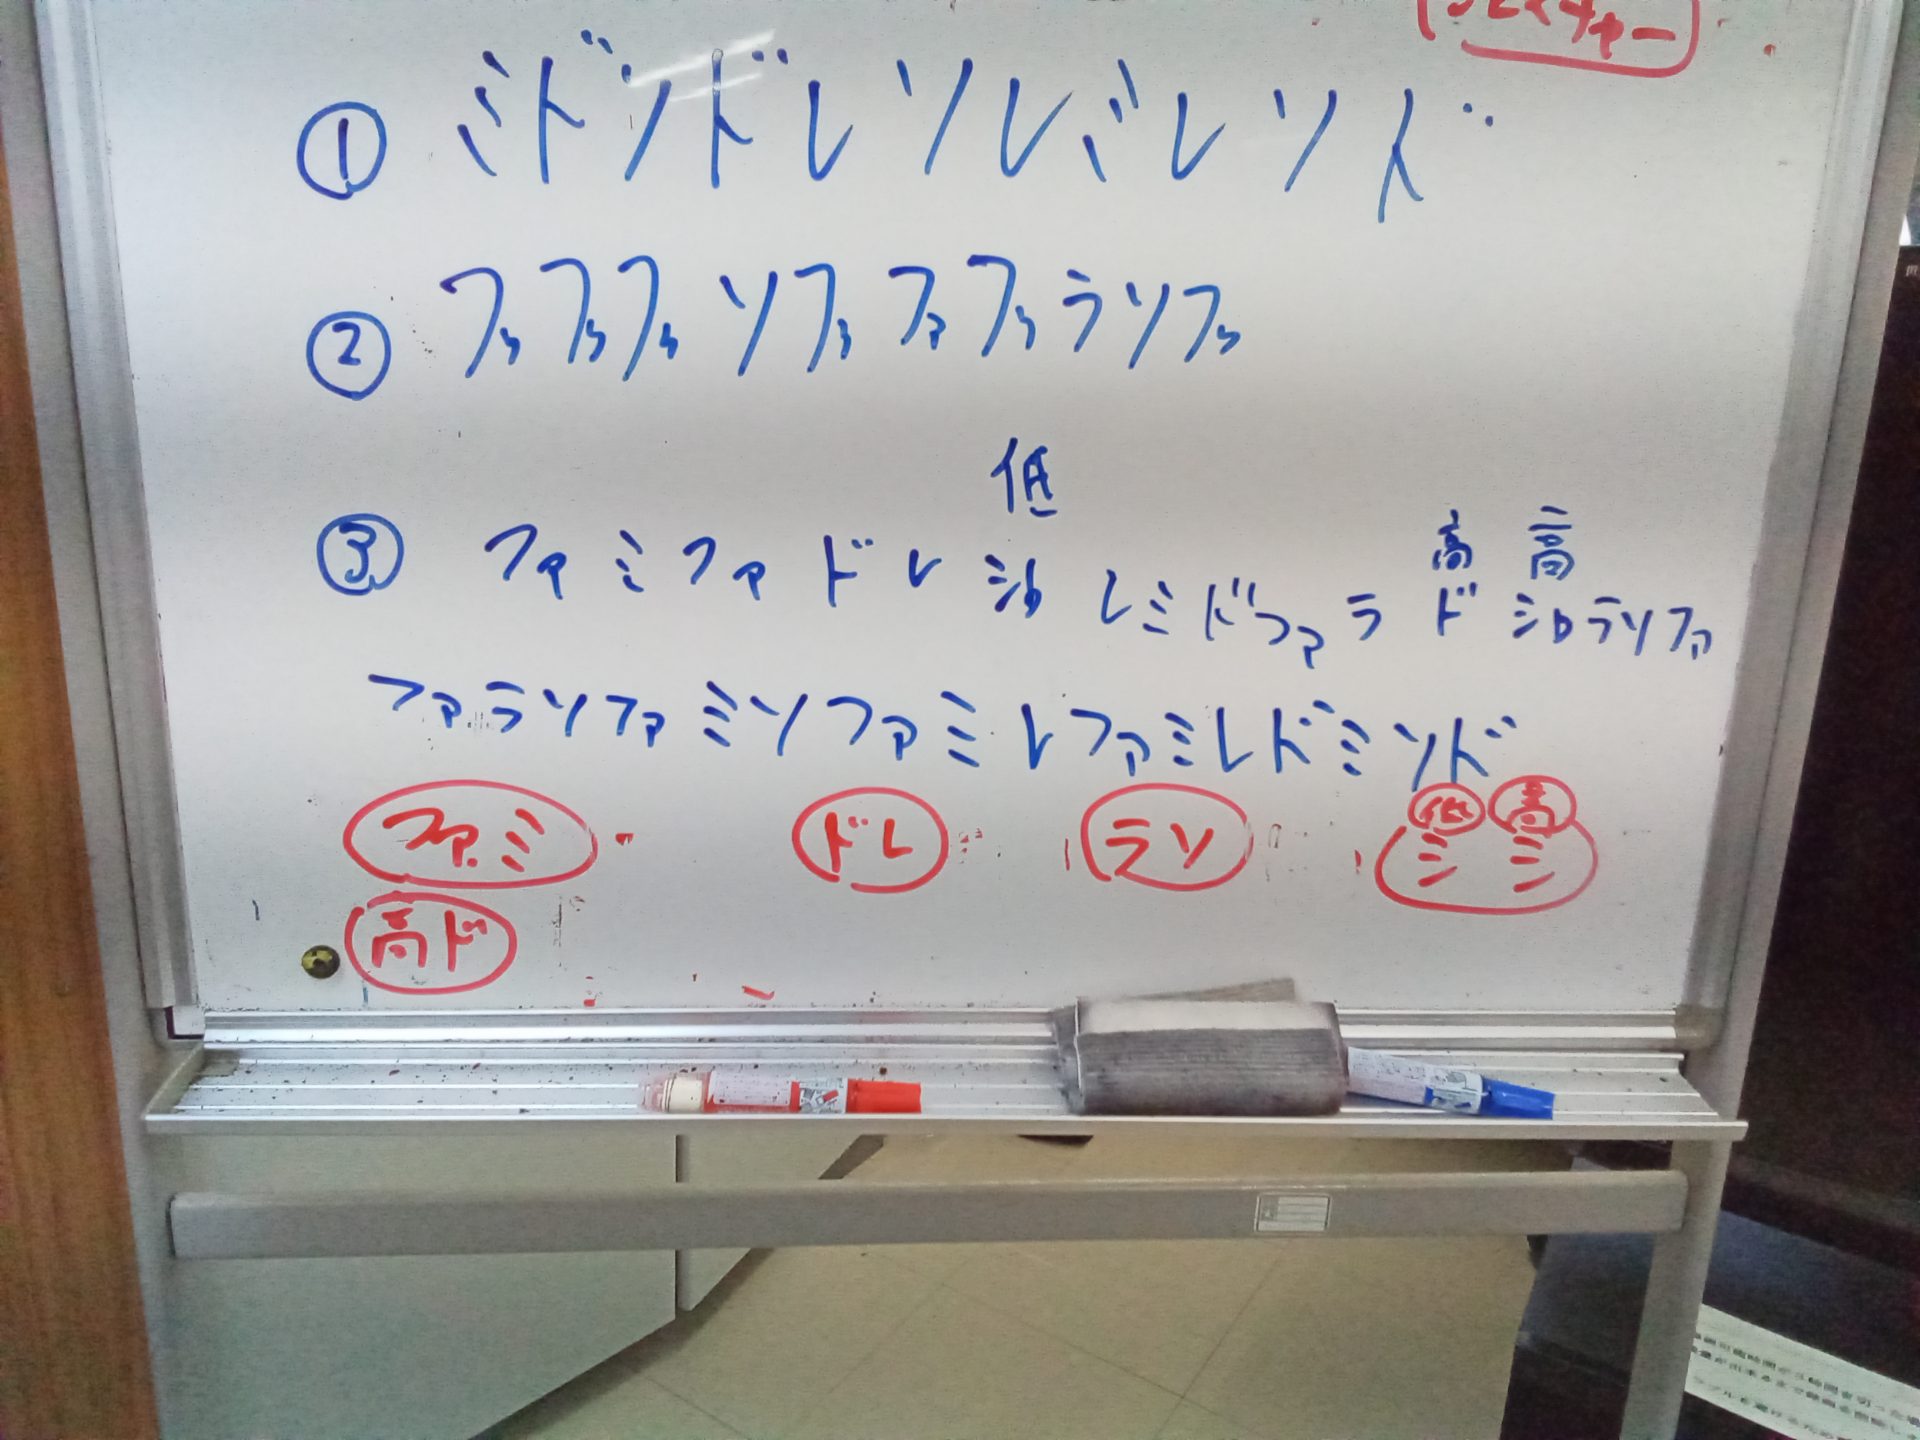 ① ミドソドレソレミレソド
② ファファファソファファファラソファ
低
高 高
③ ファミファドレシ♭レミドファラドシ♭ラソファ
ファラソファミソファミレファミレドミソド
ファ.ミ ドレ ラソ 低シ 高シ
高ド